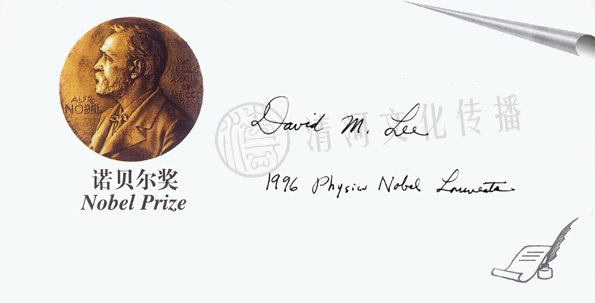 ALFR.
NOBEL
诺贝尔奖
Nobel Prize
清河文化传播
David M. Lee
1996 Physics Nobel Laureate